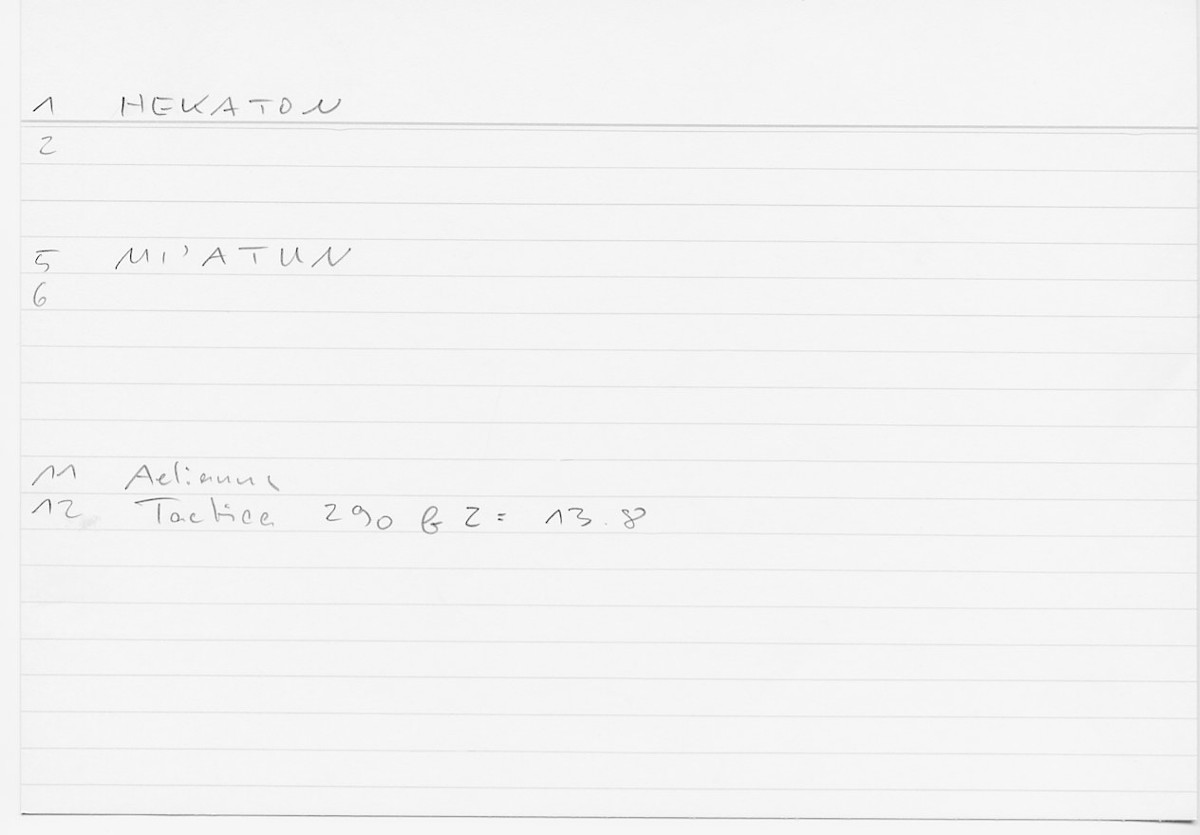 1 HEKATON
2
5 MI'ATUN
6
11 Aelianus
12 Tactica 290 b 2 = 13.8